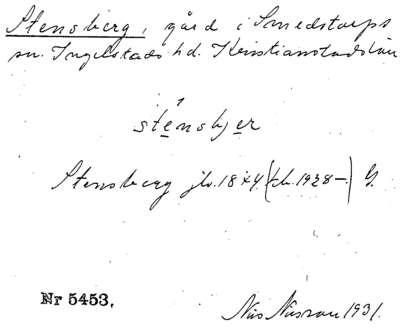 Stensberg, gård i Smedstorps
sn. Ingelstads hd. Kristianstads län
stensbjer
Stensberg jb. 1844 (tch. 1928–) G.
Nr 5453.
Nils Nilsson 1931.